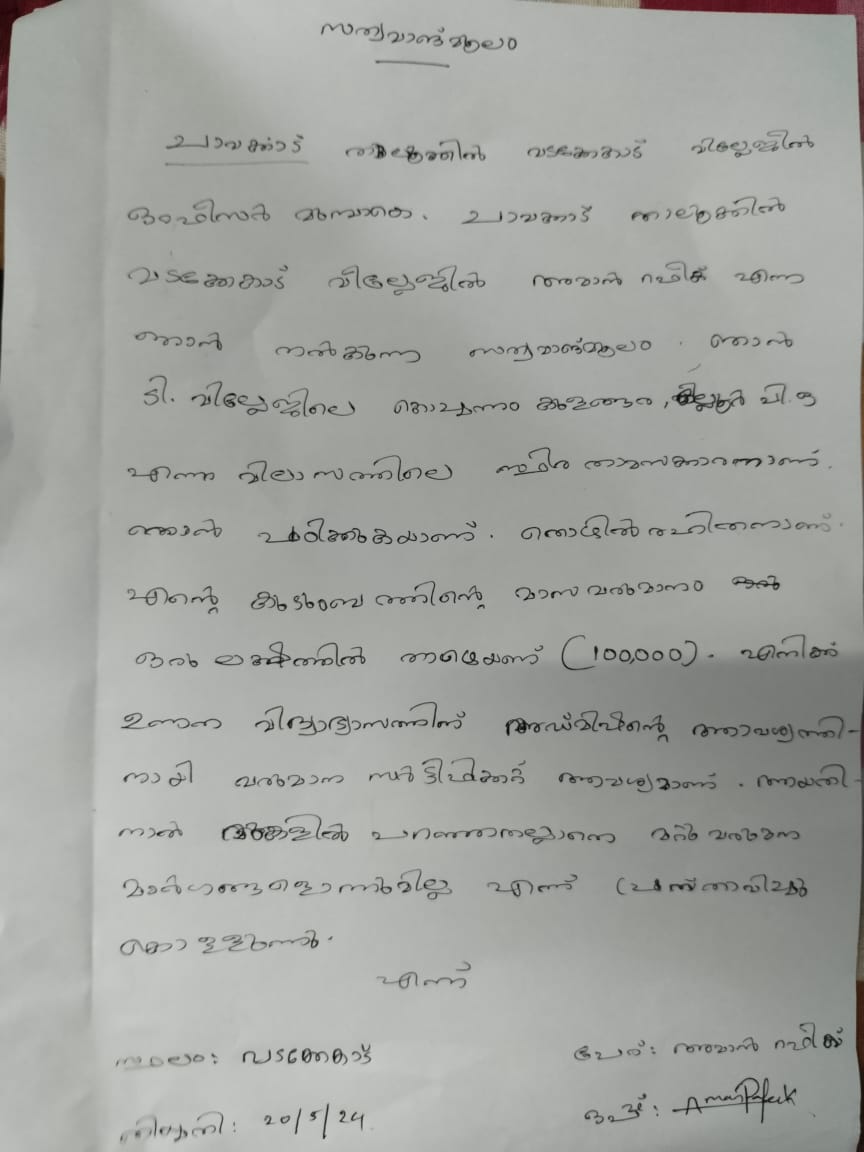 സത്യവാങ്മൂലം
ചാവക്കാട് താലൂക്കിൽ വടക്കേകാട് വില്ലേജിൽ
ഓഫീസർ മുമ്പാകെ. ചാവക്കാട് താലൂക്കിൽ
വടക്കേകാട് വില്ലേജിൽ അമാൻ റഫീക് എന്ന
ഞാൻ നൽകുന്ന സത്യവാങ്മൂലം. ഞാൻ
ടി. വില്ലേജിലെ പി.ഒ
എന്ന വിലാസത്തിലെ സ്ഥിര താമസക്കാരനാണ്.
ഞാൻ പഠിക്കുകയാണ്. തൊഴിൽ രഹിതനാണ്.
എന്റെ കുടുംബത്തിന്റെ മാസ വരുമാനം
ഒരു ലക്ഷത്തിൽ താഴെയാണ് (100,000). എനിക്ക്
ഉന്നത വിദ്യാഭ്യാസത്തിന് അഡ്മിഷന്റെ ആവശ്യത്തി-
നായി വരുമാന സർട്ടിഫിക്കറ്റ് ആവശ്യമാണ്. ആയതി-
നാൽ മുകളിൽ പറഞ്ഞതല്ലാതെ മറ്റു വരുമാന
മാർഗങ്ങളൊന്നുമില്ല എന്ന് പ്രസ്താവിച്ചു
കൊള്ളുന്നു.
എന്ന്
സ്ഥലം: വടക്കേകാട് പേര്: അമാൻ റഫീക്
തിയ്യതി: 20/5/24 ഒപ്പ്: Aman Rafeek